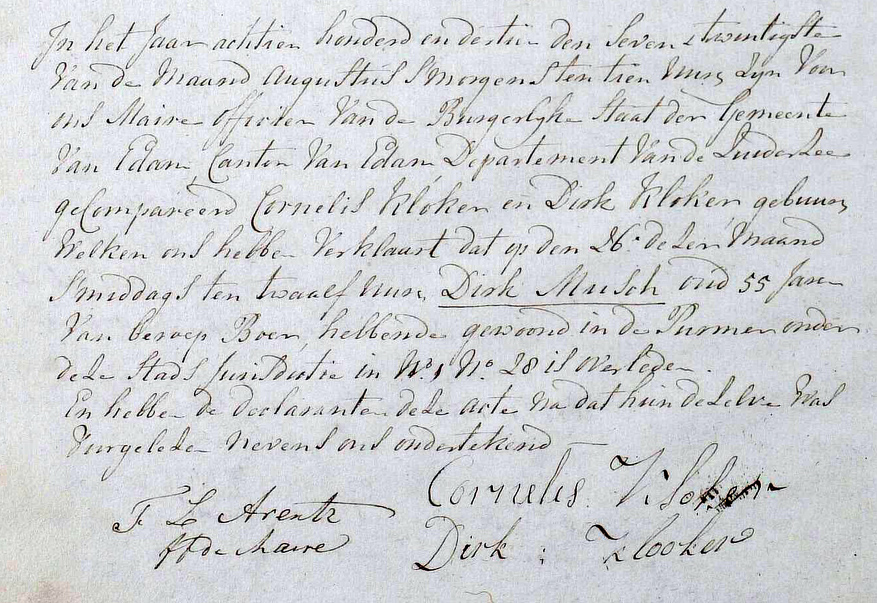 In het Jaar achtien honderd en dertin den Seven & twintigste
Van de Maand Augustus Smorgens ten tien Uure Zyn Voor
ons Maire officier Van de Burgerlyke Staat der Gemeente
Van Edam, Canton Van Edam Departement Van de Zuiderzee
geCompareerd Cornelis Kloker en Dirk Kloker gebuure
Welken ons hebben Verklaart dat op den 26e dezer Maand
Smiddags ten twaalf uure, Dirk Musch oud 55 Jare
Van beroep Boer, hebbende gewoond in de Purmer onder
deze Stads Jurisdictie in No. 28 is overleden.
En hebben de Declarante deze acte Na dat hun dezelve Was
Vorgelede nevens ons ondertekend
Cornelis Kloker
F Z Arentz
Dirk : Klooker
ff de Maire